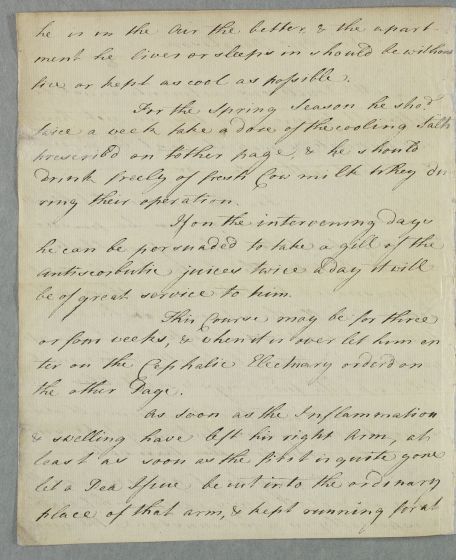 he is in the Air the better, & the apart-
ment he lives or sleeps in should be without
fire or kept as cool as possible.
For the Spring Season he shod
twice a week take a dose of the cooling Salts
prescrib'd on tother page, & he should
drink freely of fresh Cow milk Whey du
ring their operation.
If on the intervening days
he can be persuaded to take a gill of the
antiscorbutic juices twice a day it will
be of great service to him.
This Course may be for three
or four weeks, & when it is over let him en
ter on the Cephalic Electuary orderd on
the other Page.
As soon as the Inflammation
& swelling have left his right Arm, at
least as soon as the first is quite gone
let a Pea Issue be cut into the ordinary
place of that arm, & kept running for at